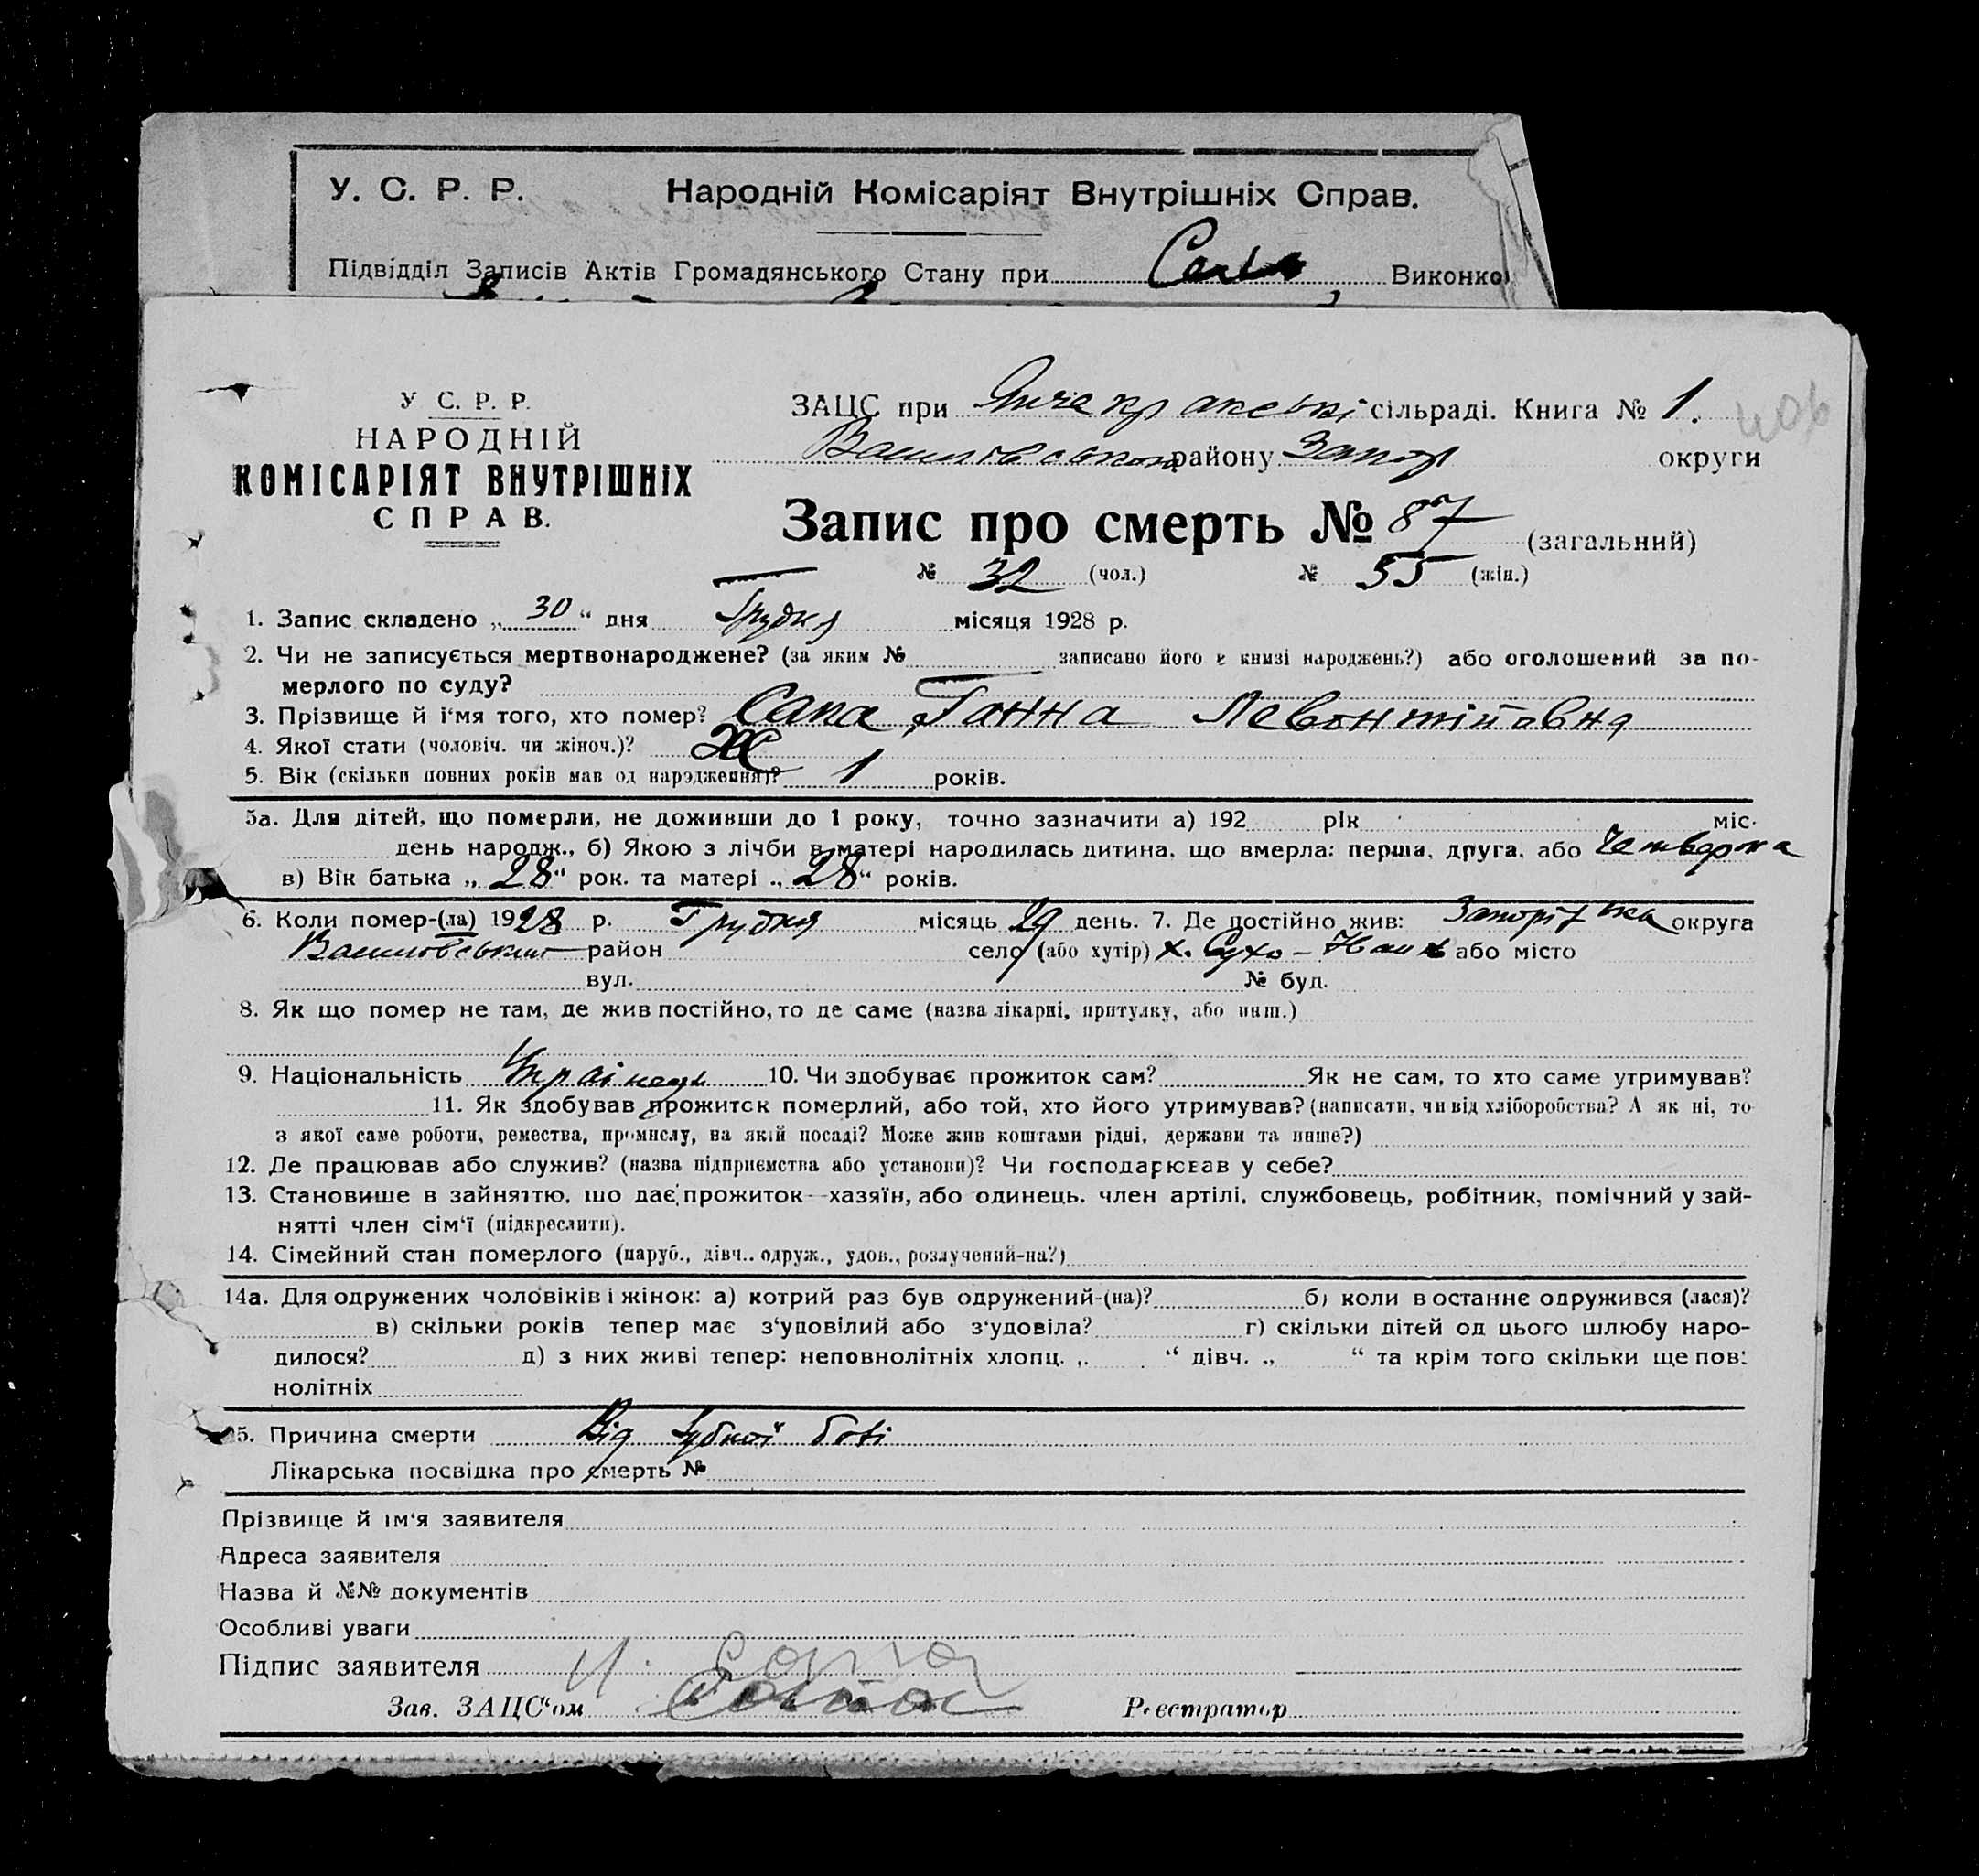 У. С. Р. Р. Народній Комісаріят Внутрішніх Справ.
Підвідділ Записів Актів Громадянського Стану при Виконко
У С. Р. Р.
НАРОДНІЙ
КОМІСАРІЯТ ВНУТРІШНІХ
СПРАВ.
ЗАЦС при Янчекракські сільраді. Книга № 1.
Василівського району Запор округи
Запис про смерть № 87 (загальний)
№ 32 (чол.) № 55 (жін.)
1. Запис складено „30“ дня Грудня місяця 1928 р.
2. Чи не записується мертвонароджене? (за яким № записано його в книзі народжень?) або оголошений за по-
мерлого по суду?
3. Прізвище й і'мя того, хто помер? Сапа Ганна Левонтійовна
4. Якої стати (чоловіч. чи жіноч.)? Ж
5. Вік (скільки повних років мав од народження)? 1 років.
5а. Для дітей, що померли, не доживши до 1 року, точно зазначити а) 192 рік міс.
день народж., б) Якою з лічби в матері народилась дитина, що вмерла: перша, друга, або Четверта
в) Вік батька „28“ рок. та матері „28“ років.
6. Коли помер-(ла) 1928 р. Грудня місяць 29 день. 7. Де постійно жив: Запоріжська округа
Василівський район село (або хутір) х. Сухо- або місто
вул. № буд.
8. Як що помер не там, де жив постійно, то де саме (назва лікарні, притулку, або инш.)
9. Національність Українець 10. Чи здобуває прожиток сам? Як не сам, то хто саме утримував?
11. Як здобував прожиток померлий, або той, хто його утримував? (написати, чи від хліборобства? А як ні, то
з якої саме роботи, ремества, промислу, на якій посаді? Може жив коштами рідні, держави та инше?)
12. Де працював або служив? (назва підприємства або установи)? Чи господарював у себе?
13. Становише в зайняттю, що дає прожиток—хазяїн, або одинець, член артілі, службовець, робітник, помічний у зай-
нятті член сім'ї (підкреслити).
14. Сімейний стан померлого (паруб., дівч., одруж., удов., розлучений-на?)
14а. Для одружених чоловіків і жінок: а) котрий раз був одружений-(на)? б) коли востаннє одружився (лася)?
в) скільки років тепер має з'удовілий або з'удовіла? г) скільки дітей од цього шлюбу наро-
дилося? д) з них живі тепер: неповнолітніх хлопц. „ “ дівч. „ “ та крім того скільки ще пов:
нолітніх
15. Причина смерти Від зубної болі
Лікарська посвідка про смерть №
Прізвище й ім'я заявителя
Адреса заявителя
Назва й №№ документів
Особливі уваги
Підпис заявителя
Зав. ЗАЦС'ом Реєстратор